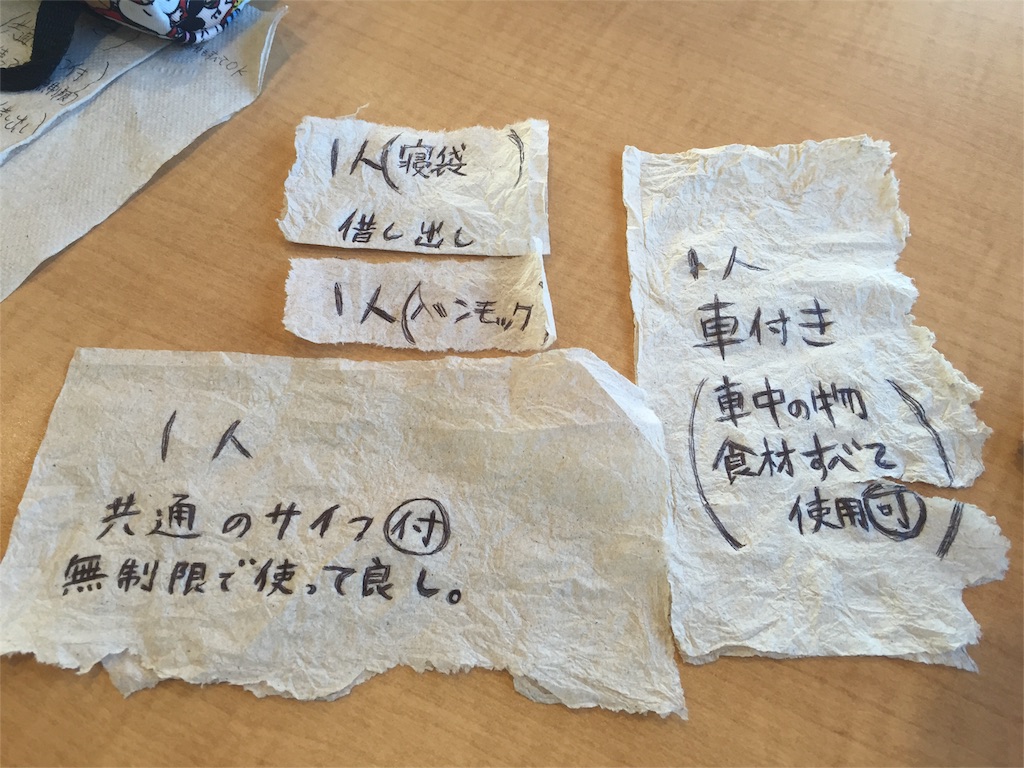 OK
1人(寝袋 )
借し出し
1人(ハンモック)
1人
車付き
(車中の物
食材すべて
使用可)
1人
共通のサイフ付
無制限で使って良し。